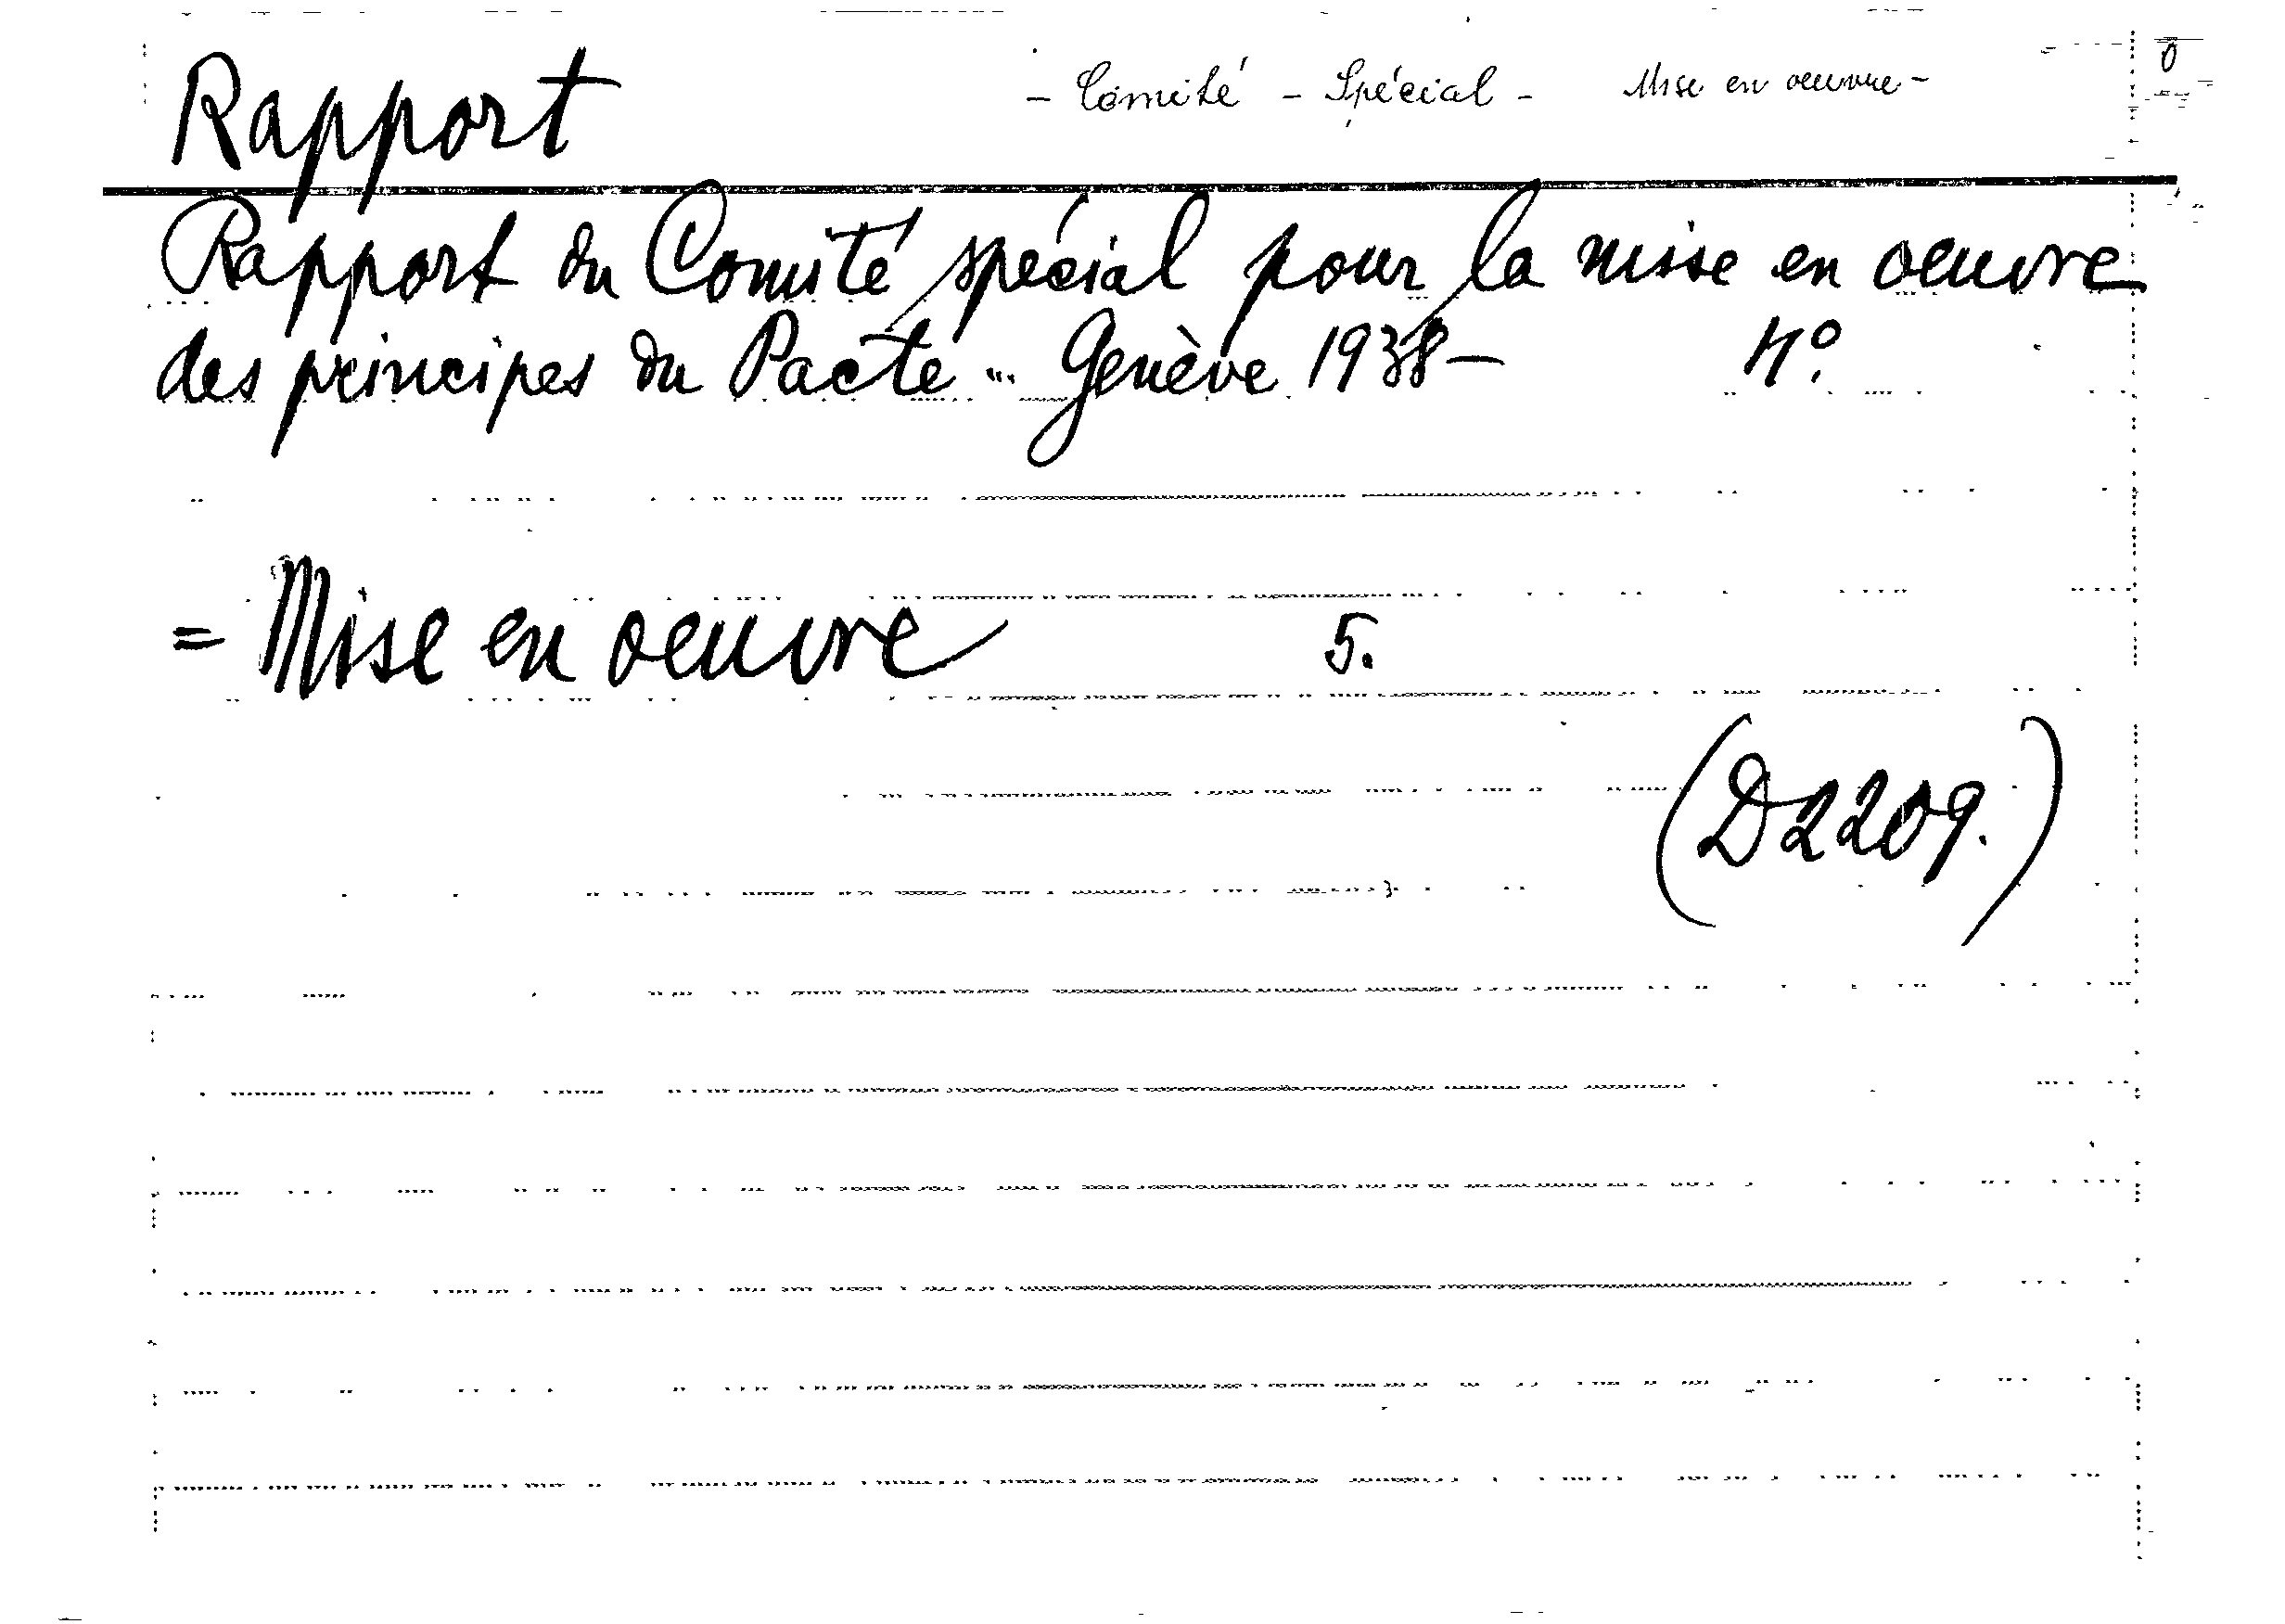 Rapport - Comité - Spécial - Mise en oeuvre -
Rapport du Comité spécial pour la mise en oeuvre
des principes du Pacte... Genève 1938 - N°.
= Mise en oeuvre 5.
(D2209.)